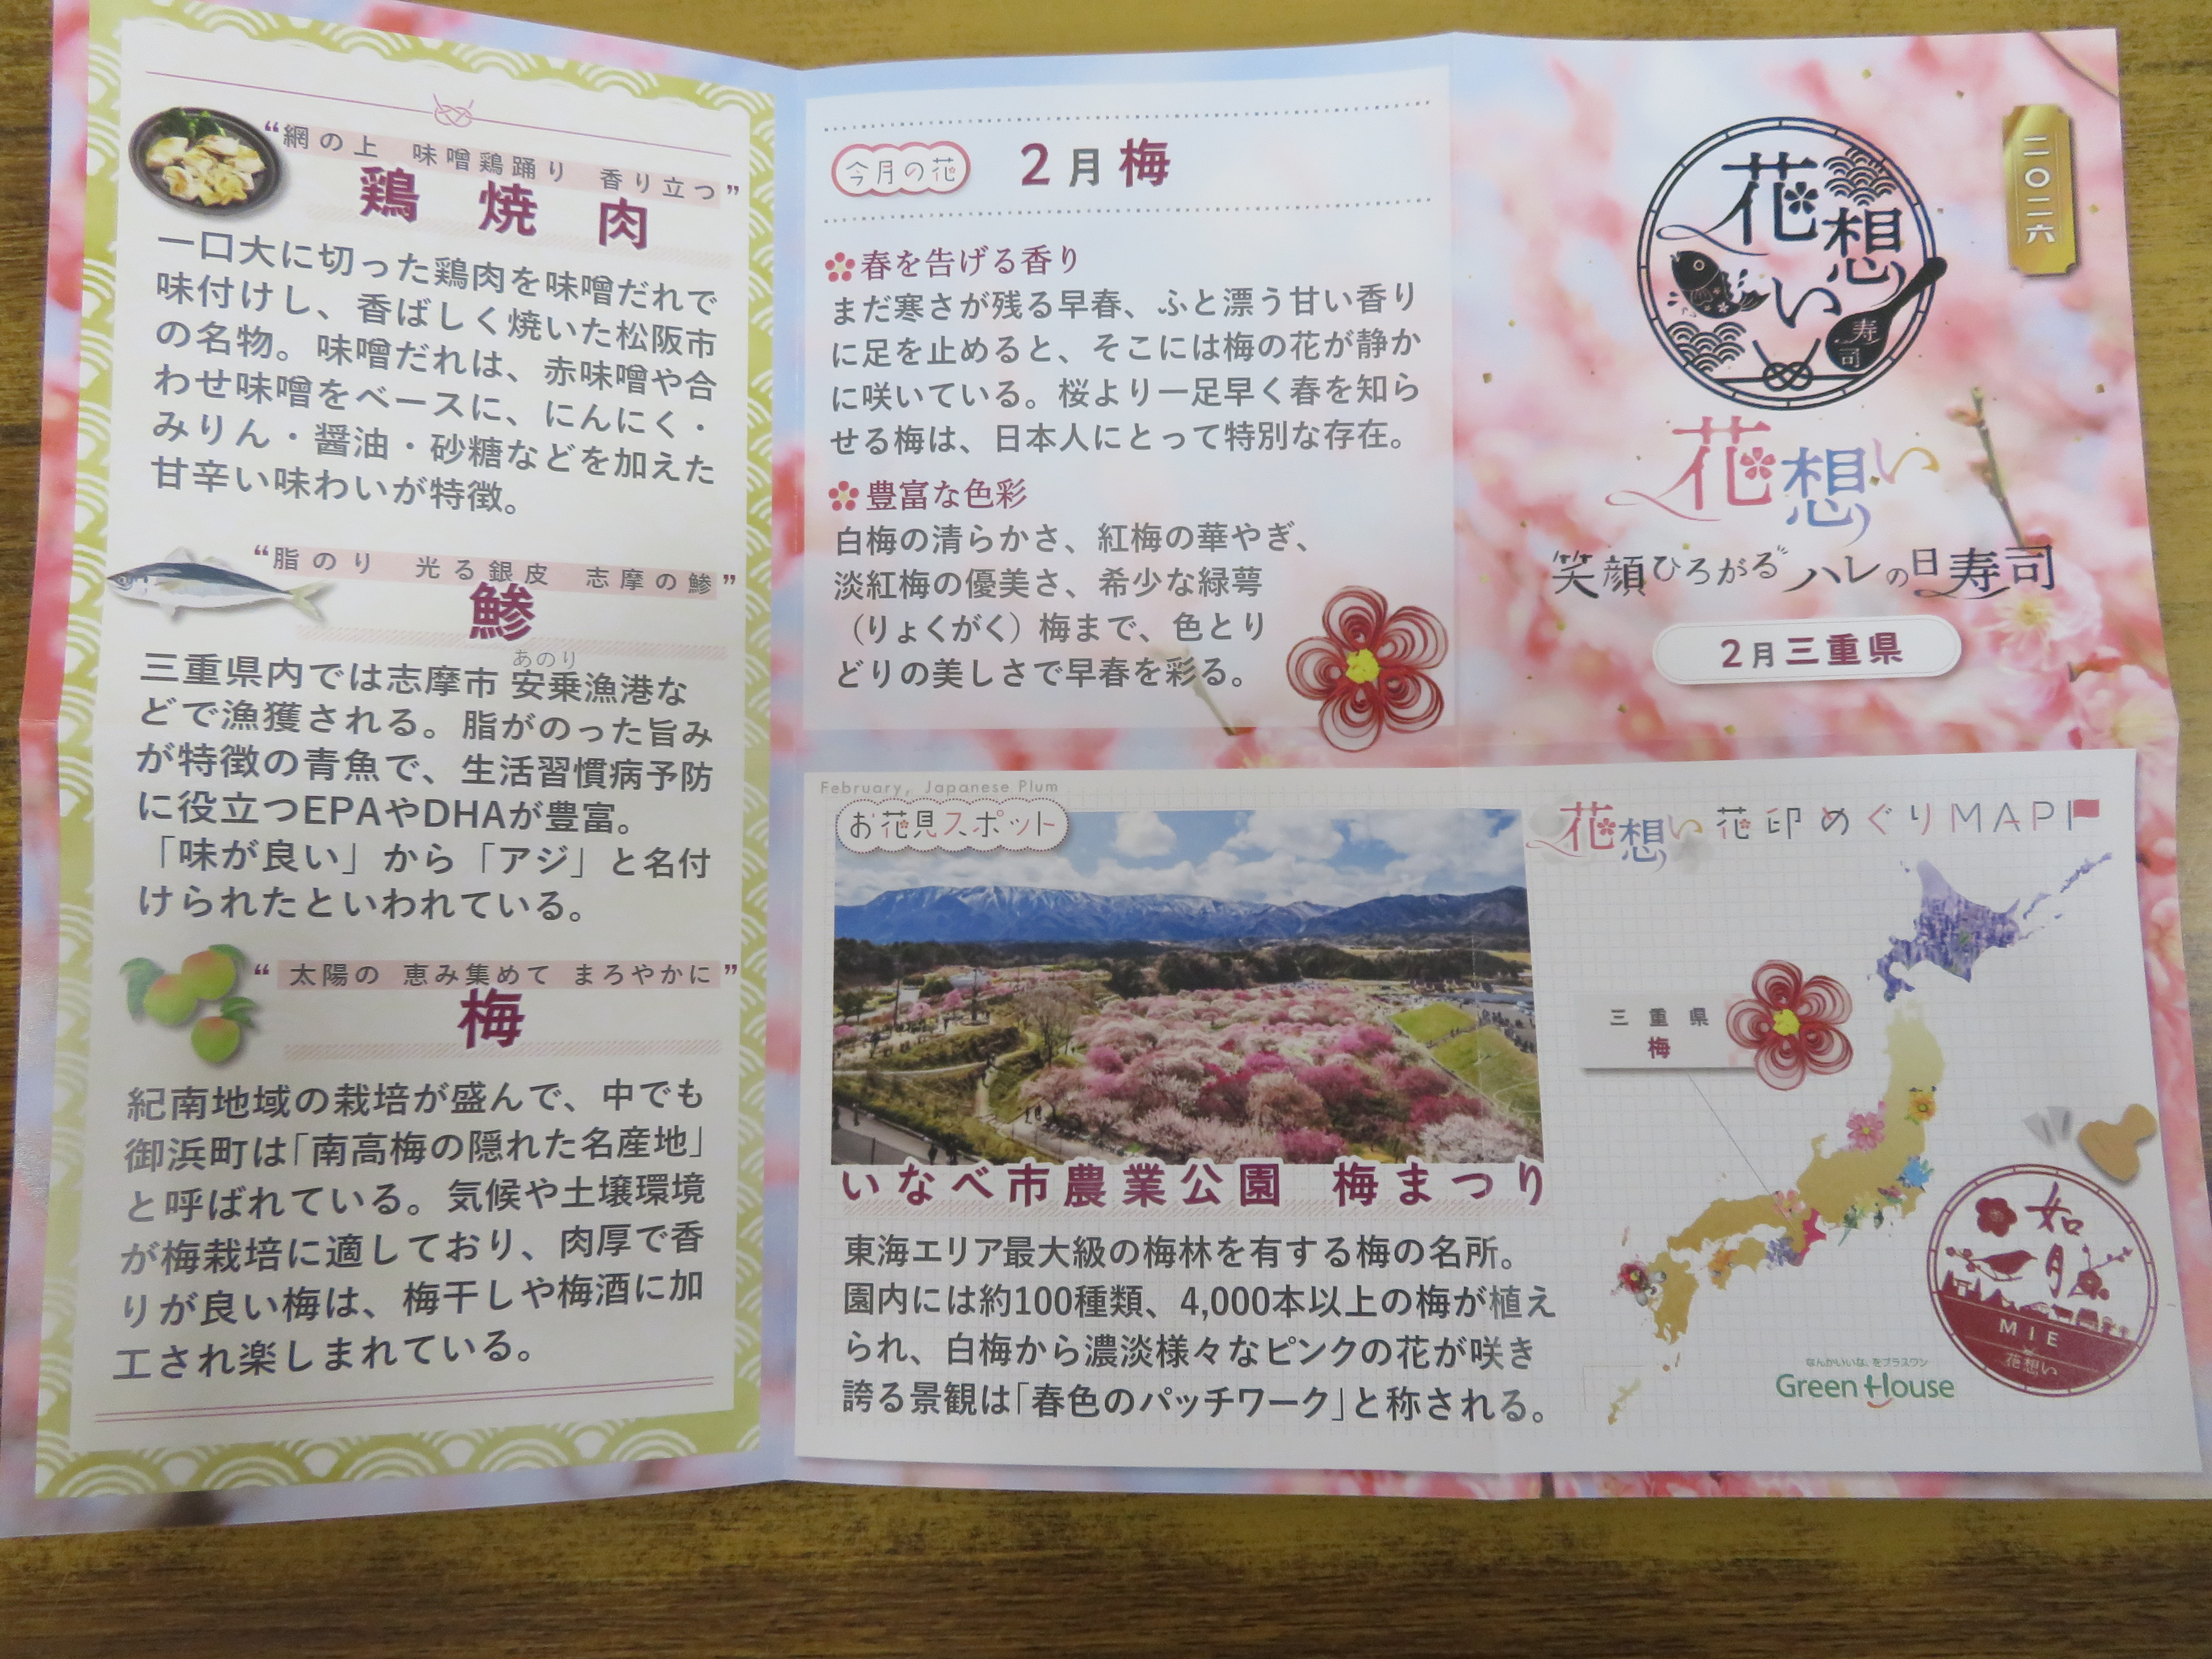 “網の上 味噌鶏踊り 香り立つ”
鶏焼肉
一口大に切った鶏肉を味噌だれで
味付けし、香ばしく焼いた松阪市
の名物。味噌だれは、赤味噌や合
わせ味噌をベースに、にんにく・
みりん・醤油・砂糖などを加えた
甘辛い味わいが特徴。
“脂のり 光る銀皮 志摩の鯵”
鯵
あのり
三重県内では志摩市 安乗漁港な
どで漁獲される。脂がのった旨み
が特徴の青魚で、生活習慣病予防
に役立つEPAやDHAが豊富。
「味が良い」から「アジ」と名付
けられたといわれている。
“太陽の 恵み集めて まろやかに”
梅
紀南地域の栽培が盛んで、中でも
御浜町は「南高梅の隠れた名産地」
と呼ばれている。気候や土壌環境
が梅栽培に適しており、肉厚で香
りが良い梅は、梅干しや梅酒に加
工され楽しまれている。
今月の花
2月梅
春を告げる香り
まだ寒さが残る早春、ふと漂う甘い香り
に足を止めると、そこには梅の花が静か
に咲いている。桜より一足早く春を知ら
せる梅は、日本人にとって特別な存在。
豊富な色彩
白梅の清らかさ、紅梅の華やぎ、
淡紅梅の優美さ、希少な緑萼
（りょくがく）梅まで、色とり
どりの美しさで早春を彩る。
二〇二六
花想い
寿司
花想い
笑顔ひろがる ハレの日寿司
2月三重県
February, Japanese Plum
お花見スポット
いなべ市農業公園 梅まつり
東海エリア最大級の梅林を有する梅の名所。
園内には約100種類、4,000本以上の梅が植え
られ、白梅から濃淡様々なピンクの花が咲き
誇る景観は「春色のパッチワーク」と称される。
花想い 花印めぐりMAP
三重県
梅
如月
MIE
花想い
なんかいいな、をプラスワン
Green House